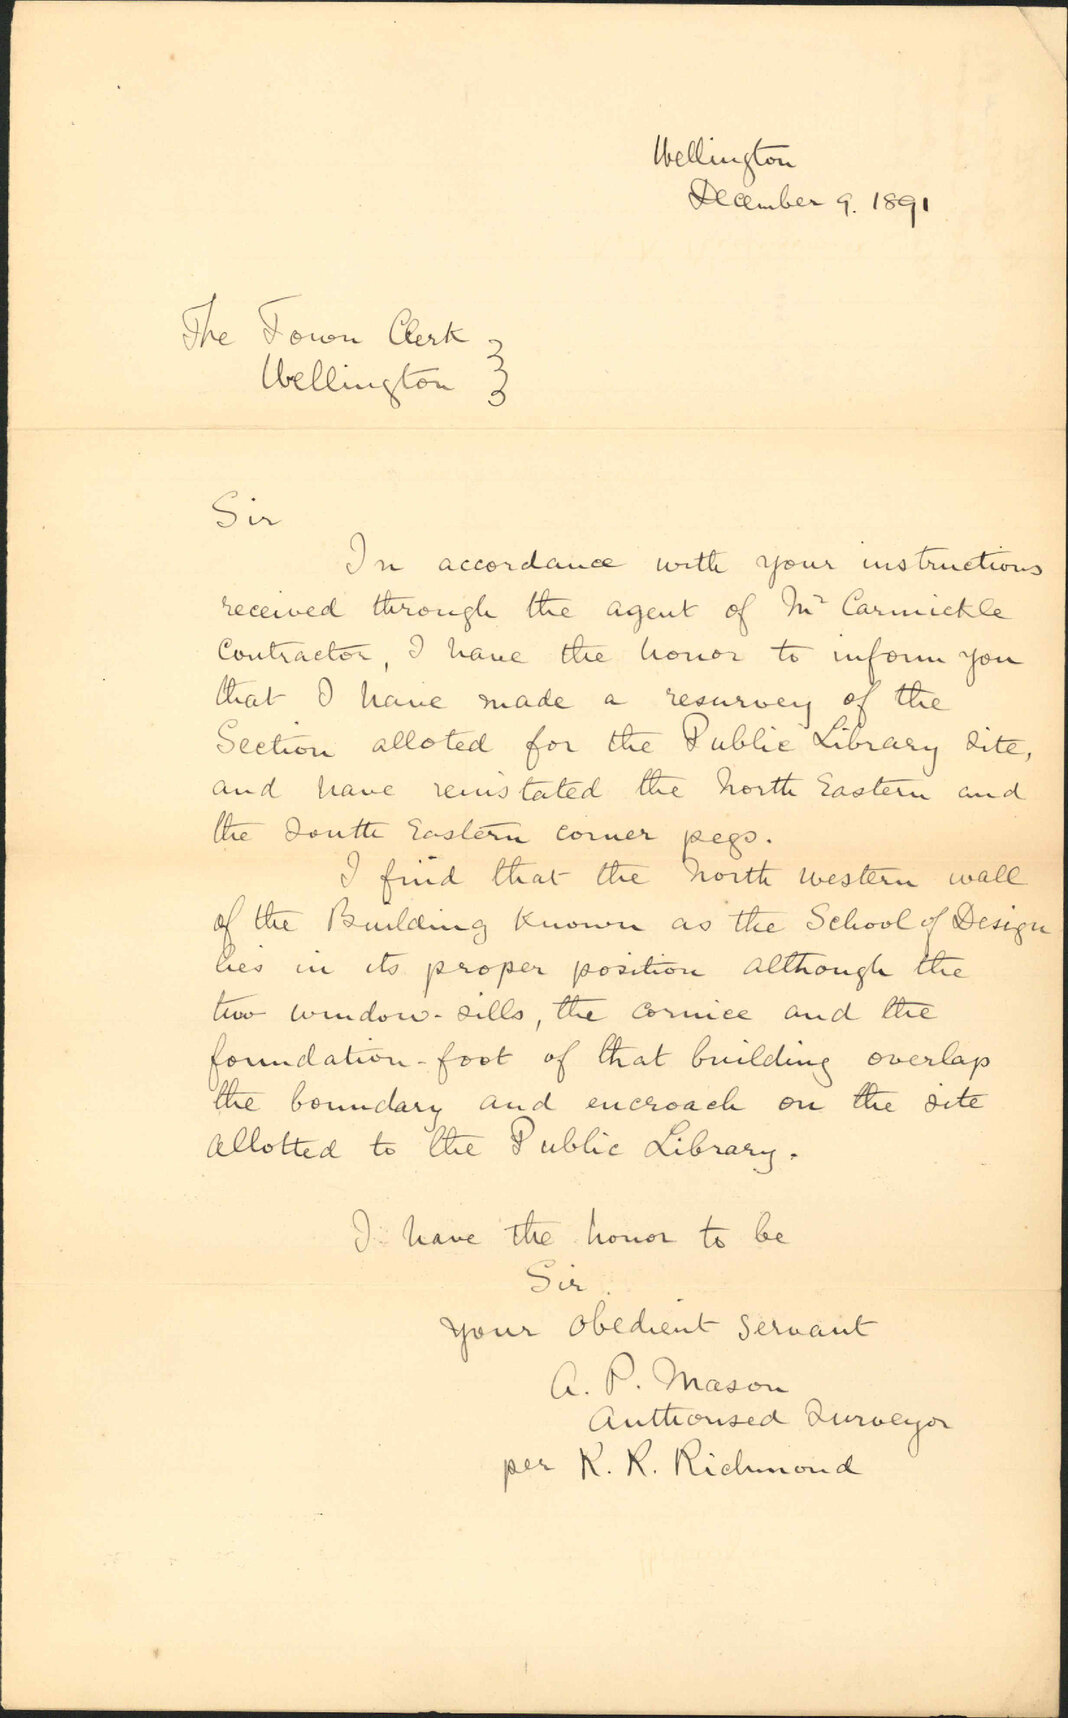 Wellington
December 9. 1891
The Town Clerk
Wellington
Sir
In accordance with your instructions
received through the agent of Mr Carmickle
Contractor, I have the honor to inform you
that I have made a resurvey of the
Section alloted for the Public Library site,
and have reinstated the North Eastern and
the South Eastern corner pegs.
I find that the North western wall
of the Building known as the School of Design
lies in its proper position although the
two window-sills, the cornice and the
foundation-foot of that building overlap
the boundary and encroach on the site
allotted to the Public Library.
I have the honor to be
Sir
your obedient servant
A. P. Mason
Authorised Surveyor
per K. R. Richmond